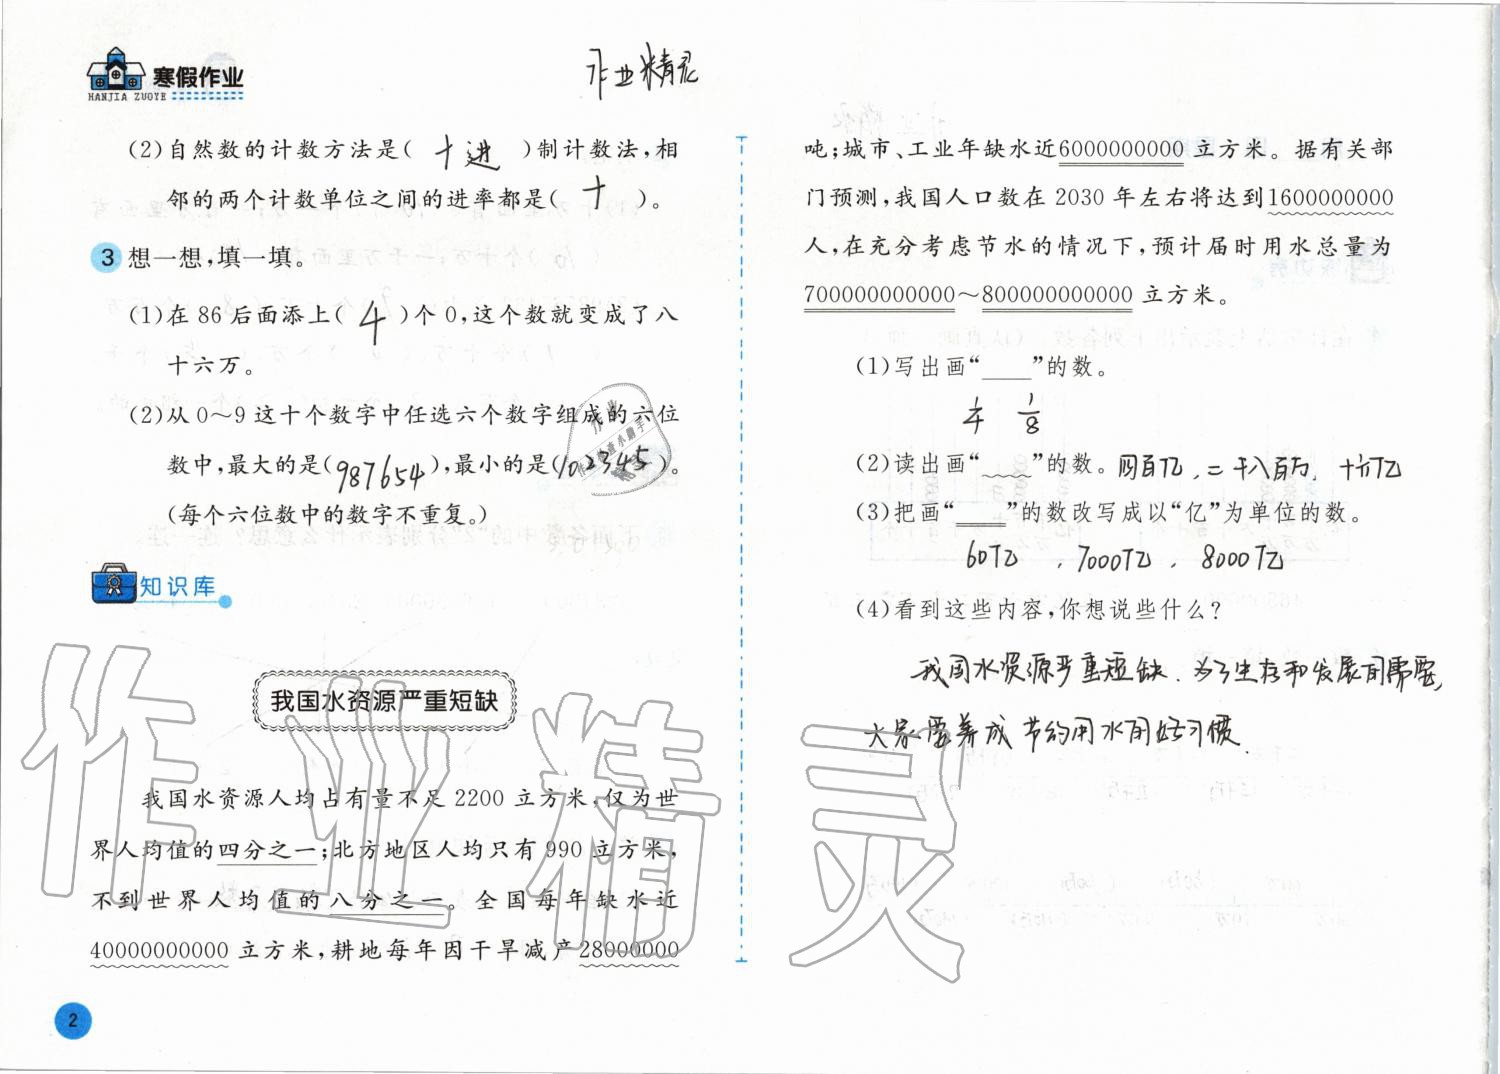 寒假作业
HANJIA ZUOYE
作业精灵
(2)自然数的计数方法是( 十进 )制计数法,相
邻的两个计数单位之间的进率都是( 十 )。
3 想一想,填一填。
(1)在86后面添上( 4 )个0,这个数就变成了八
十六万。
(2)从0～9这十个数字中任选六个数字组成的六位
数中,最大的是(987654),最小的是(102345)。
(每个六位数中的数字不重复。)
知识库
我国水资源严重短缺
我国水资源人均占有量不足2200立方米,仅为世
界人均值的四分之一;北方地区人均只有990立方米,
不到世界人均值的八分之一。全国每年缺水近
40000000000立方米,耕地每年因干旱减产28000000
2
吨;城市、工业年缺水近6000000000立方米。据有关部
门预测,我国人口数在2030年左右将达到1600000000
人,在充分考虑节水的情况下,预计届时用水总量为
700000000000～800000000000立方米。
(1)写出画“____”的数。
1/4 1/8
(2)读出画“____”的数。四百亿,二千八百万,十六亿
(3)把画“____”的数改写成以“亿”为单位的数。
60亿,7000亿,8000亿
(4)看到这些内容,你想说些什么?
我国水资源严重短缺.为了生存和发展的需要,
大家要养成节约用水的好习惯.
作业精灵